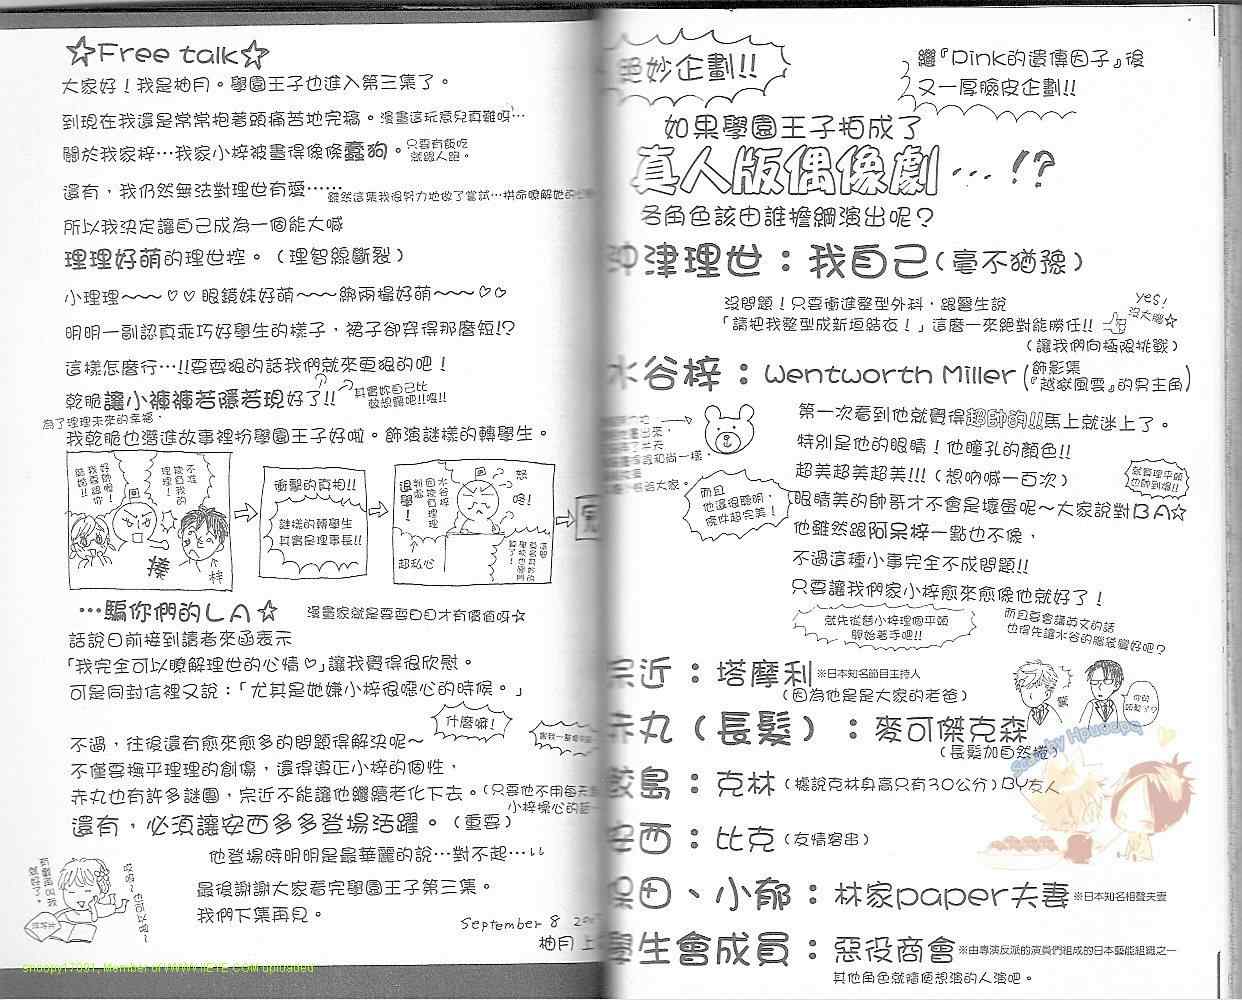 ☆Free talk☆
大家好！我是柚月。學園王子也進入第三集了。
到現在我還是常常抱著頭痛苦地完稿。漫畫這玩意兒真難呀…
關於我家梓…我家小梓被畫得像條蠢狗。只要有飯吃就跟人跑。
還有，我仍然無法對理世有愛……雖然這集我很努力地做了嘗試…拼命瞭解她的
所以我決定讓自己成為一個能大喊
理理好萌的理世控。（理智線斷裂）
小理理～～～♡♡眼鏡妹好萌～～～綁兩撮好萌～～～♡♡
明明一副認真乖巧好學生的樣子，裙子卻穿得那麼短!?
這樣怎麼行…!!要耍狠的話我們就來更狠的吧！
乾脆讓小褲褲若隱若現好了!!
為了理理未來的幸福，
我乾脆也潛進故事裡扮學園王子好啦。飾演謎樣的轉學生。
衝擊的真相!!
謎樣的轉學生
其實是理事長!!
水谷梓
退學！
超私心
梓
…騙你們的LA☆ 漫畫家就是要耍白目才有價值呀☆
話說日前接到讀者來函表示
「我完全可以瞭解理世的心情♡」讓我覺得很欣慰。
可是同封信裡又說：「尤其是她嫌小梓很噁心的時候。」
什麼嘛！
不過，往後還有愈來愈多的問題得解決呢～
不僅要撫平理理的創傷，還得導正小梓的個性，
赤丸也有許多謎團，宗近不能讓他繼續老化下去。（只要他不用每天
小梓操心的話
還有，必須讓安西多多登場活躍。（重要）
他登場時明明是最華麗的說…對不起…
最後謝謝大家看完學園王子第三集。
我們下集再見。
September 8 200
柚月上
snoopy17091, Member of WWW.IIETE.COM uploaded
絕妙企劃!!
繼『Pink的遺傳因子』後
又一厚臉皮企劃!!
如果學園王子拍成了
真人版偶像劇…!?
各角色該由誰擔綱演出呢？
沖津理世：我自己（毫不猶豫）
沒問題！只要衝進整型外科，跟醫生說
「請把我整型成新垣結衣！」這麼一來絕對能勝任!!
（讓我們向極限挑戰）
yes!
沒大腦☆
水谷梓：Wentworth Miller（飾影集『越獄風雲』的男主角）
第一次看到他就覺得超帥的!!馬上就迷上了。
特別是他的眼睛！他瞳孔的顏色!!
超美超美超美!!!（想吶喊一百次）
就算理平頭
也帥到爆!!
而且
他還很聰明，
條件超完美！
眼睛美的帥哥才不會是壞蛋呢～大家說對BA☆
他雖然跟阿呆梓一點也不像，
不過這種小事完全不成問題!!
只要讓我們家小梓愈來愈像他就好了！
就先從替小梓理個平頭
開始著手吧!!
而且要會講英文的話
也得先讓水谷的腦袋變好吧？
宗近：塔摩利※日本知名節目主持人
（因為他是是大家的老爸）
赤丸（長髮）：麥可傑克森
（長髮加自然捲）
鮫島：克林（據說克林身高只有30公分）BY友人
安西：比克（友情客串）
保田、小郁：林家paper夫妻※日本知名相聲夫妻
學生會成員：惡役商會※由專演反派的演員們組成的日本藝能組織之一
其他角色就隨便想演的人演吧。